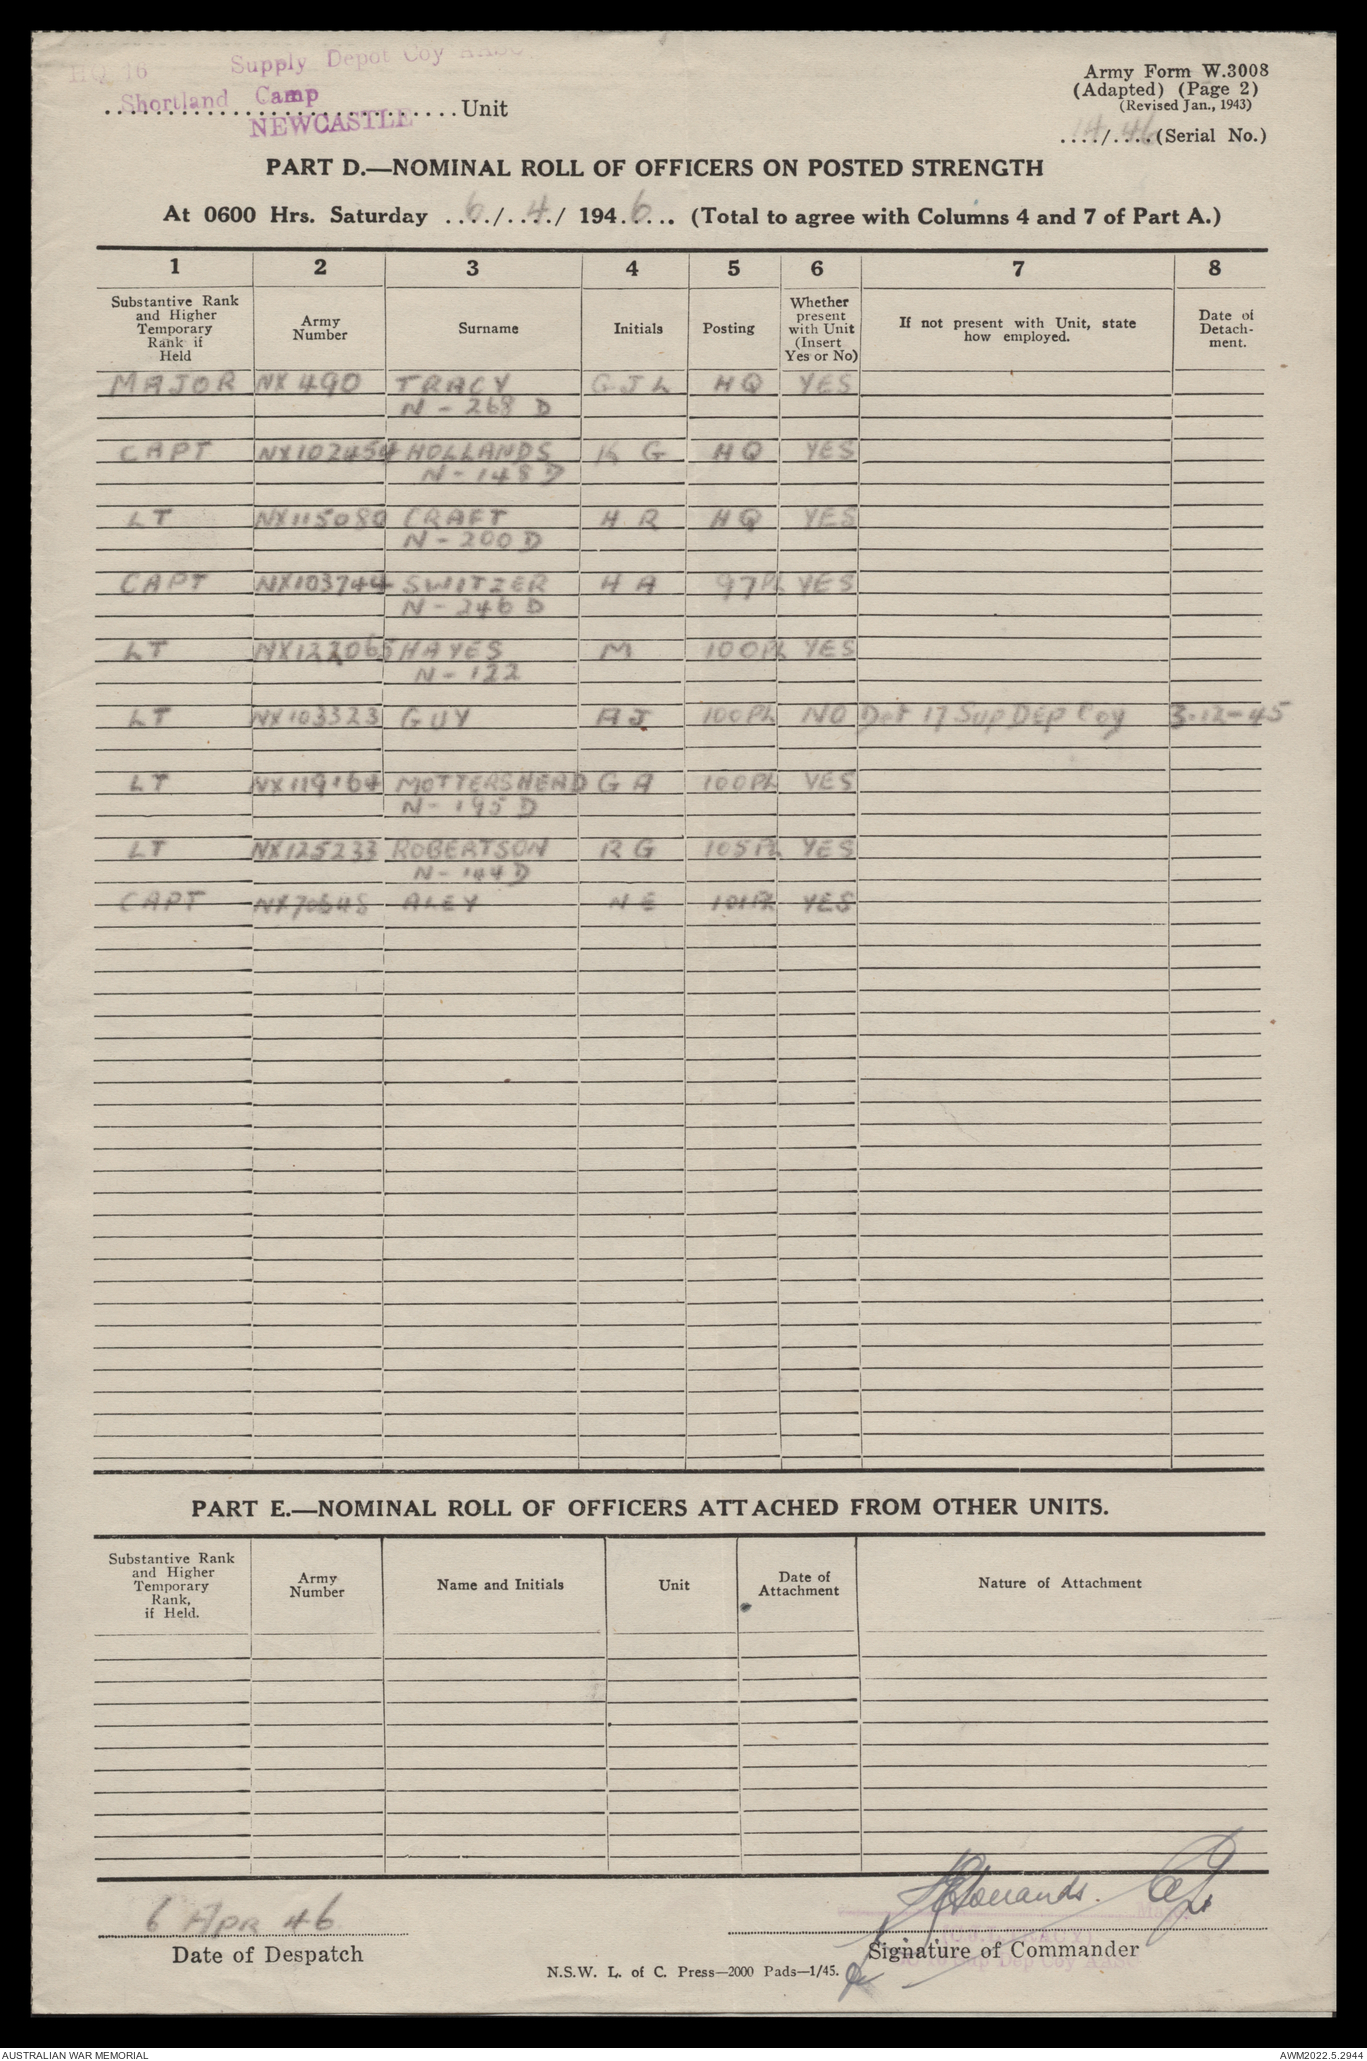 HQ 16 Supply Depot Coy AASC
Shortland Camp
NEWCASTLE
Unit
Army Form W.3008
(Adapted) (Page 2)
(Revised Jan., 1943)
14/46 (Serial No.)
PART D.—NOMINAL ROLL OF OFFICERS ON POSTED STRENGTH
At 0600 Hrs. Saturday 6/4/ 1946 (Total to agree with Columns 4 and 7 of Part A.)
1 2 3 4 5 6 7 8
Substantive Rank and Higher Temporary Rank if Held | Army Number | Surname | Initials | Posting | Whether present with Unit (Insert Yes or No) | If not present with Unit, state how employed. | Date of Detach-ment.
MAJOR NX 490 TRACY G J L HQ YES
N - 268 D
CAPT NX102454 HOLLANDS K G HQ YES
N - 148 D
LT NX115080 CRAFT H R HQ YES
N - 200 D
CAPT NX103744 SWITZER H A 97PL YES
N - 246 D
LT NX122065 HAYES M 100PL YES
N - 122
LT NX103323 GUY A J 100PL NO Det 17 Sup DEP Coy 3-12-45
LT NX119164 MOTTERSHEAD G A 100PL YES
N - 195 D
LT NX125233 ROBERTSON R G 105PL YES
N - 144 D
CAPT NX70645 ALEY N E 101PL YES
PART E.—NOMINAL ROLL OF OFFICERS ATTACHED FROM OTHER UNITS.
Substantive Rank and Higher Temporary Rank, if Held. | Army Number | Name and Initials | Unit | Date of Attachment | Nature of Attachment
6 APR 46
Date of Despatch
KHollands. Capt
Major
(G.J.L. TRACY)
Signature of Commander
OC 16 Sup Dep Coy AASC
N.S.W. L. of C. Press—2000 Pads—1/45.
AUSTRALIAN WAR MEMORIAL
AWM2022.5.2944